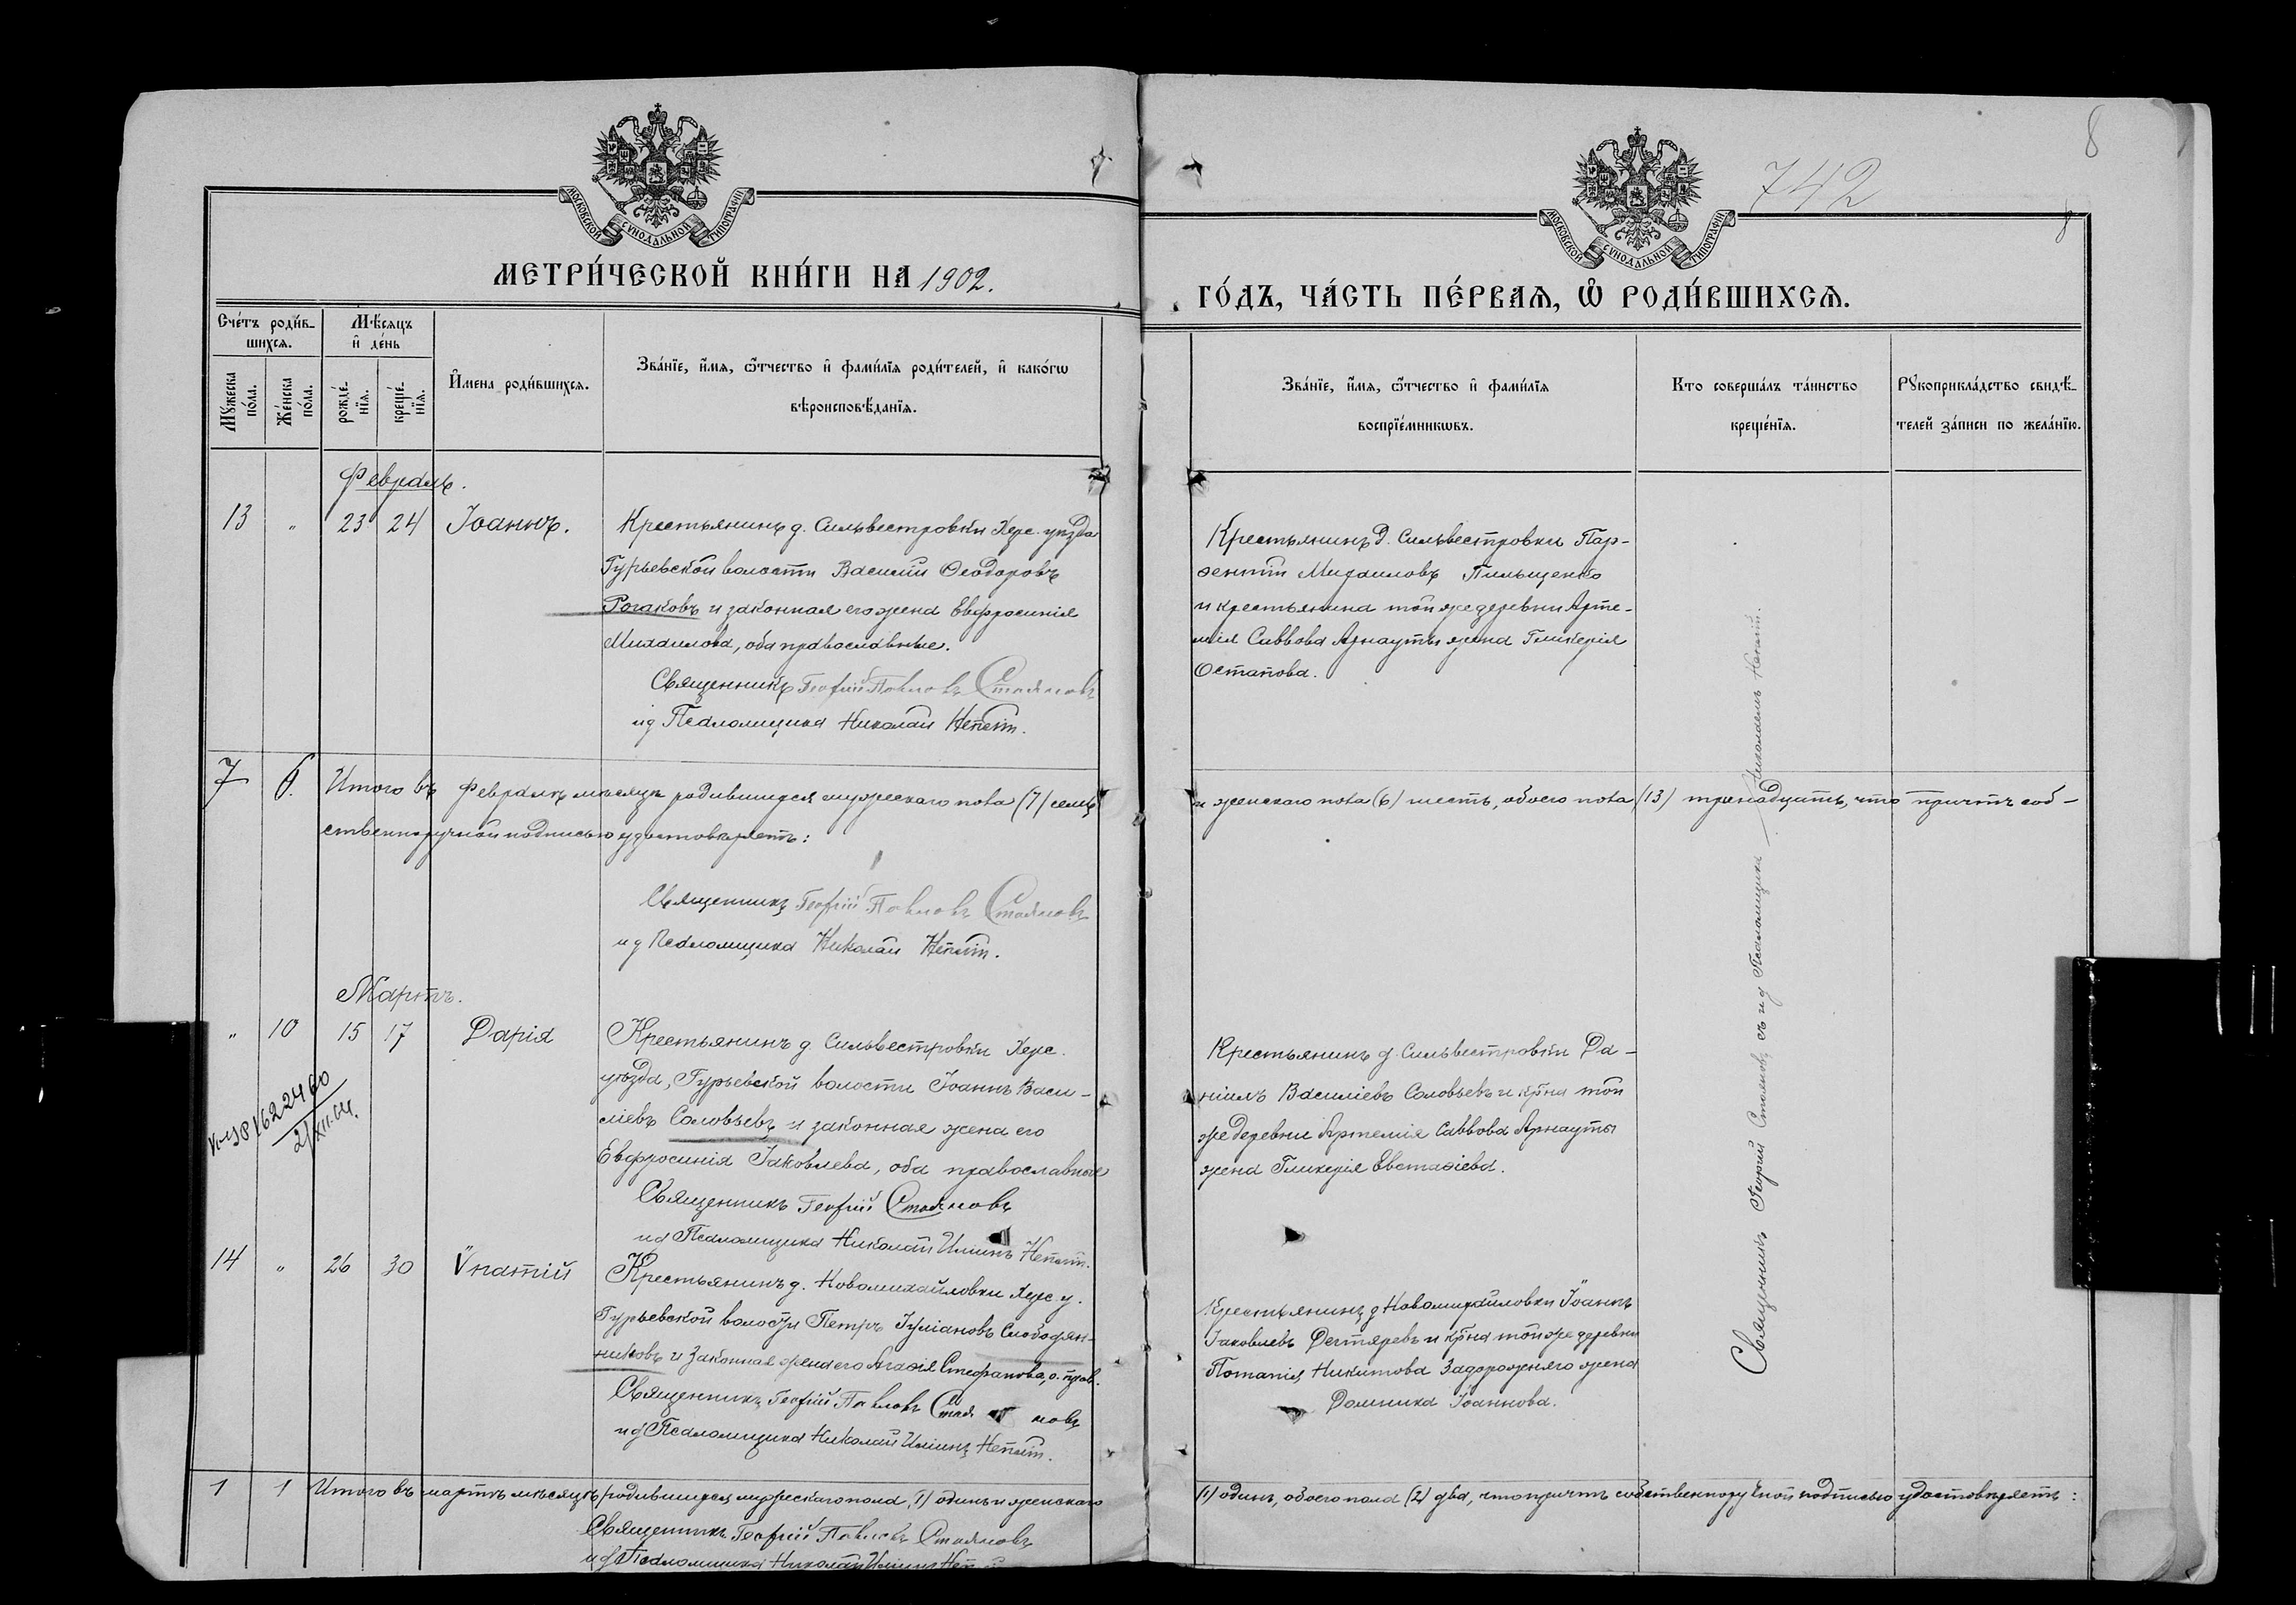 МОСКОВСКОЙ СѴНОДАЛЬНОЙ ТИПОГРАФІИ
МЕТРИ́ЧЕСКОЙ КНИ́ГИ НА 1902.
Сче́тъ роди́в-
шихсѧ.
Мѣ́сѧцъ
и҆ де́нь
Мꙋ́жеска
по́ла.
Же́нска
по́ла.
рожде́-
нїѧ.
креще́-
нїѧ.
И҆мена роди́вшихсѧ.
Зва́нїе, и҆́мѧ, ѻ҆́тчество и҆ фами́лїѧ роди́телей, и҆ како́гѡ
вѣроисповѣ́данїѧ.
Февраль.
13 " 23 24 Іоаннъ.
Крестьянинъ д. Сильвестровки Херс. уѣзда
Гурьевской волости Василій Ѳеодоровъ
Рогаковъ и законная его жена Евфросинія
Михаилова, оба православные.
Священникъ Георгій Павловъ Стояновъ
и д Псаломщика Николай
7 6. Итого въ Февралѣ мѣсяцѣ родившихся мужескаго пола (7) семь
ственноручной подписью удостовѣряетъ:
Священникъ Георгій Павловъ Стояновъ
и д Псаломщика Николай
Мартъ.
" 10 15 17 Дарія
Крестьянинъ д. Сильвестровки Херс.
уѣзда, Гурьевской волости Іоаннъ Васи-
ліевъ Соловьевъ и законная жена его
Евфросинія Іаковлева, оба православные
Священникъ Георгій Стояновъ
и д Псаломщика Николай Иліинъ
21/XII.64.
14 " 26 30 Ѵпатій
Крестьянинъ д. Новомихайловки Херс. у.
Гурьевской волости Петръ Іуліановъ Слободян-
никовъ и законная жена его Агаѳія Стефанова, о. прав.
Священникъ Георгій Павловъ Стояновъ
и д Псаломщика Николай Иліинъ
1 1 Итого въ мартѣ мѣсяцѣ родившихся мужескаго пола (1) одинъ и женскаго
Священникъ Георгій Павловъ Стояновъ
и д Псаломщика Николай Иліинъ
8
742
8
МОСКОВСКОЙ СѴНОДАЛЬНОЙ ТИПОГРАФІИ
ГО́ДЪ, ЧА́СТЬ ПЕ́РВАѦ, Ѡ҆ РОДИ́ВШИХСѦ.
Зва́нїе, и҆́мѧ, ѻ҆́тчество и҆ фами́лїѧ
воспрїе́мникѡвъ.
Кто соверша́лъ та́инство
креще́нїѧ.
Рꙋкоприкла́дство свидѣ́-
телей за́писи по жела́нїю.
Крестьянинъ д. Сильвестровки Пар-
ѳентій Михаиловъ Пильщенко
и крестьянина той же деревни Арте-
мія Саввова Арнауты жена Гликерія
Остапова.
и женскаго пола (6) шесть, обоего пола (13) тринадцать, что причтъ соб-
Крестьянинъ д. Сильвестровки Да-
ніилъ Василіевъ Соловьевъ и кр-на той
же деревни Артемія Саввова Арнауты
жена Гликерія Евстаѳіева.
Крестьянинъ д Новомихайловки Іоаннъ
Іаковлевъ Дегтяревъ и кр-на той же деревни
Потапія Никитова Задорожняго жена
Домника Іоаннова.
Священникъ Георгій Стояновъ съ и д Псаломщика Николаемъ
(1) одинъ, обоего пола (2) два, что причтъ собственноручной подписью удостовѣряетъ: